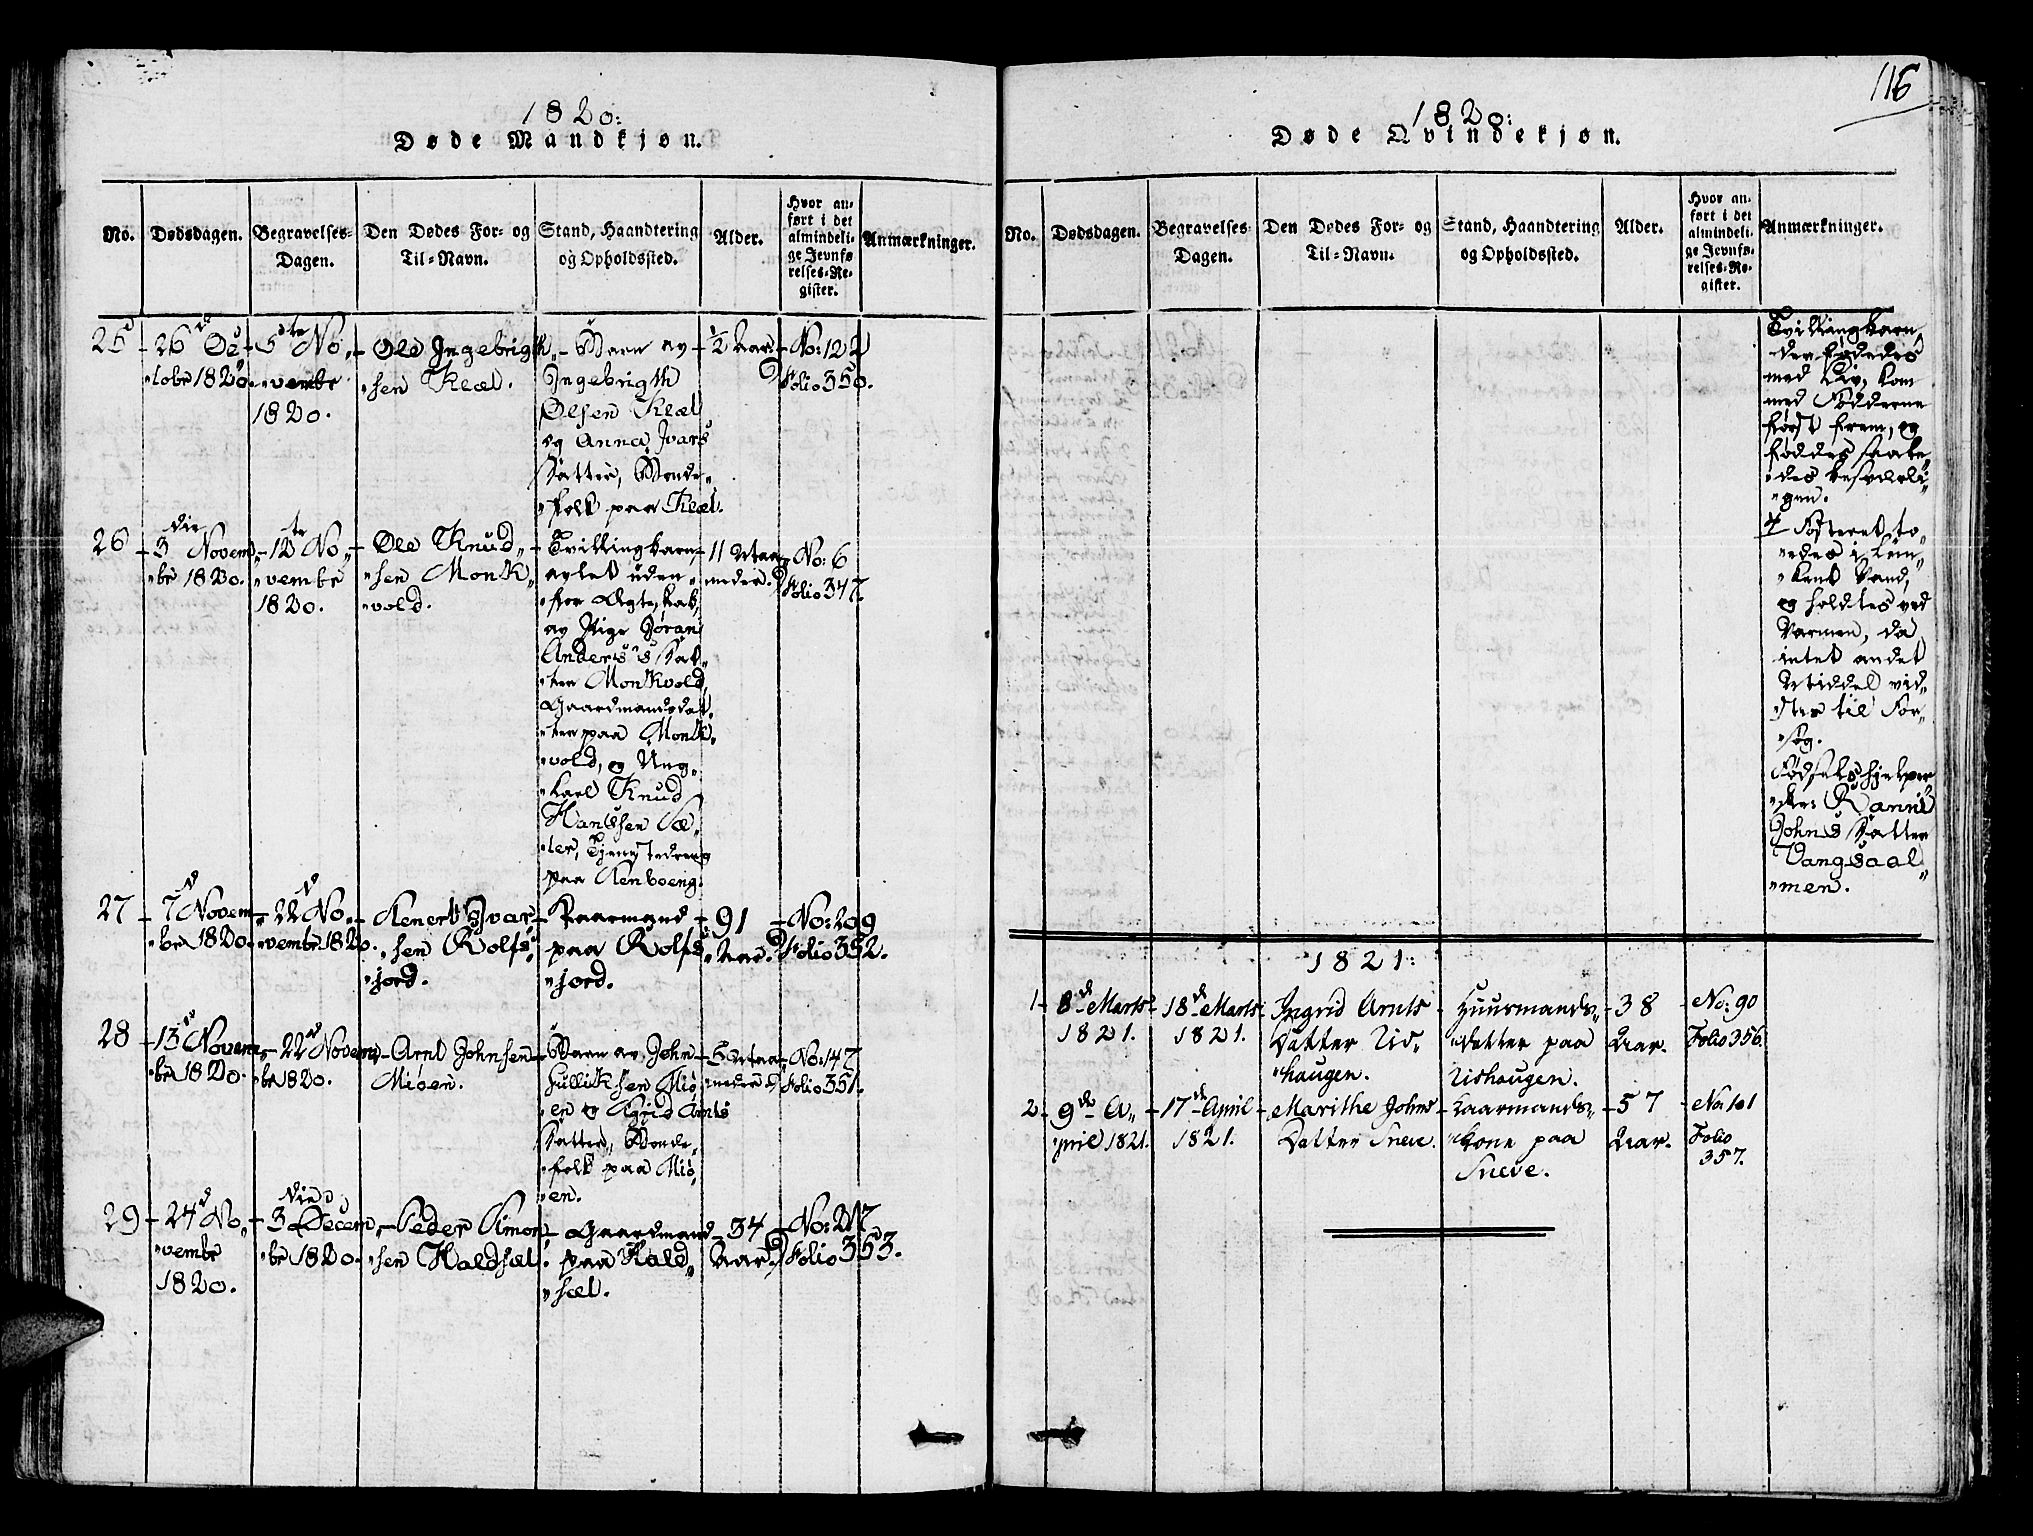 1820:
Døde Mandkjøn.
No.
Dødsdagen.
Begravelses-
Dagen.
Den Dødes For- og
Til-Navn.
Stand, Haandtering
og Opholdssted.
Alder.
Hvor an-
ført i det
almindeli-
ge Jevnfø-
relses-Re-
gister.
Anmærkninger.
25
26d Oc-
tobr 1820.
5te No-
vembr
1820.
Ole Ingebrigth-
sen Kleæl.
Barn av
Ingebrigth
Olsen Kleæl
og Anna Ivars
Datter, Bonde-
folk paa Kleæl.
1/2 Aar
No: 122
Folio 350.
26
3die Novem-
br 1820.
12te No-
vembr
1820.
Ole Knud-
sen Monk-
vold.
Tvillingbarn,
avlet uden-
for Ægteskab,
av Pige Jøran
Anders's Dat-
ter Monkvold,
Gaardmandsdat-
ter paa Monk-
vold, og Ung-
karl Knud
Hansen Sæ-
ter, Tjenstedreng
paa Renboeng.
11 Maa-
neder.
No: 6
Folio 347.
27
7d Novem-
br 1820.
22d No-
vembr 1820.
Renert Ivar-
sen Rolfs-
jord.
Kaarmand
paa Rolfs-
jord.
91
Aar.
No: 209
Folio 352.
28
13d Novem-
br 1820.
22d Novem-
br 1820.
Arnt Johnsen
Miøen.
Barn av John
Gulliksen Miø-
en og Sigrid Arnts
Datter, Bonde-
folk paa Miø-
en.
5 Maa-
neder
No: 147
Folio 351.
29
24d No-
vembr
1820.
3die Decem-
br 1820.
Peder Simon-
sen Haldsæl.
Gaardmand
paa Hald-
sæl.
34
Aar.
No: 217
Folio 353.
116
1820:
Døde Qvindekjøn.
No.
Dødsdagen.
Begravelses-
Dagen.
Den Dødes For- og
Til-Navn.
Stand, Haandtering
og Opholdssted.
Alder.
Hvor an-
ført i det
almindeli-
ge Jevnfø-
relses-Re-
gister.
Anmærkninger.
Tvillingbarn,
der fødedes
med Liv, kom
med Fødderne
først frem, og
fødtes saale-
des besværli-
gen.
Fosteret to-
edes i lun-
kent Vand,
og holdtes ved
Varmen, da
intet andet
Middel vid-
stes til For-
søg.
Fødselshjelper-
ske: Rannil
Johns Datter
Vangsaal-
men.
1821:
1
8d Marts
1821.
18d Marts
1821.
Ingrid Arnts
Datter Lis-
haugen.
Huusmands-
datter paa
Lishaugen.
38
Aar.
No: 90
Folio 356.
2
9d A-
pril 1821.
17d April
1821.
Marithe Johns
Datter Sneve.
Kaarmands-
kone paa
Sneve.
57
Aar.
No: 101
Folio
357.